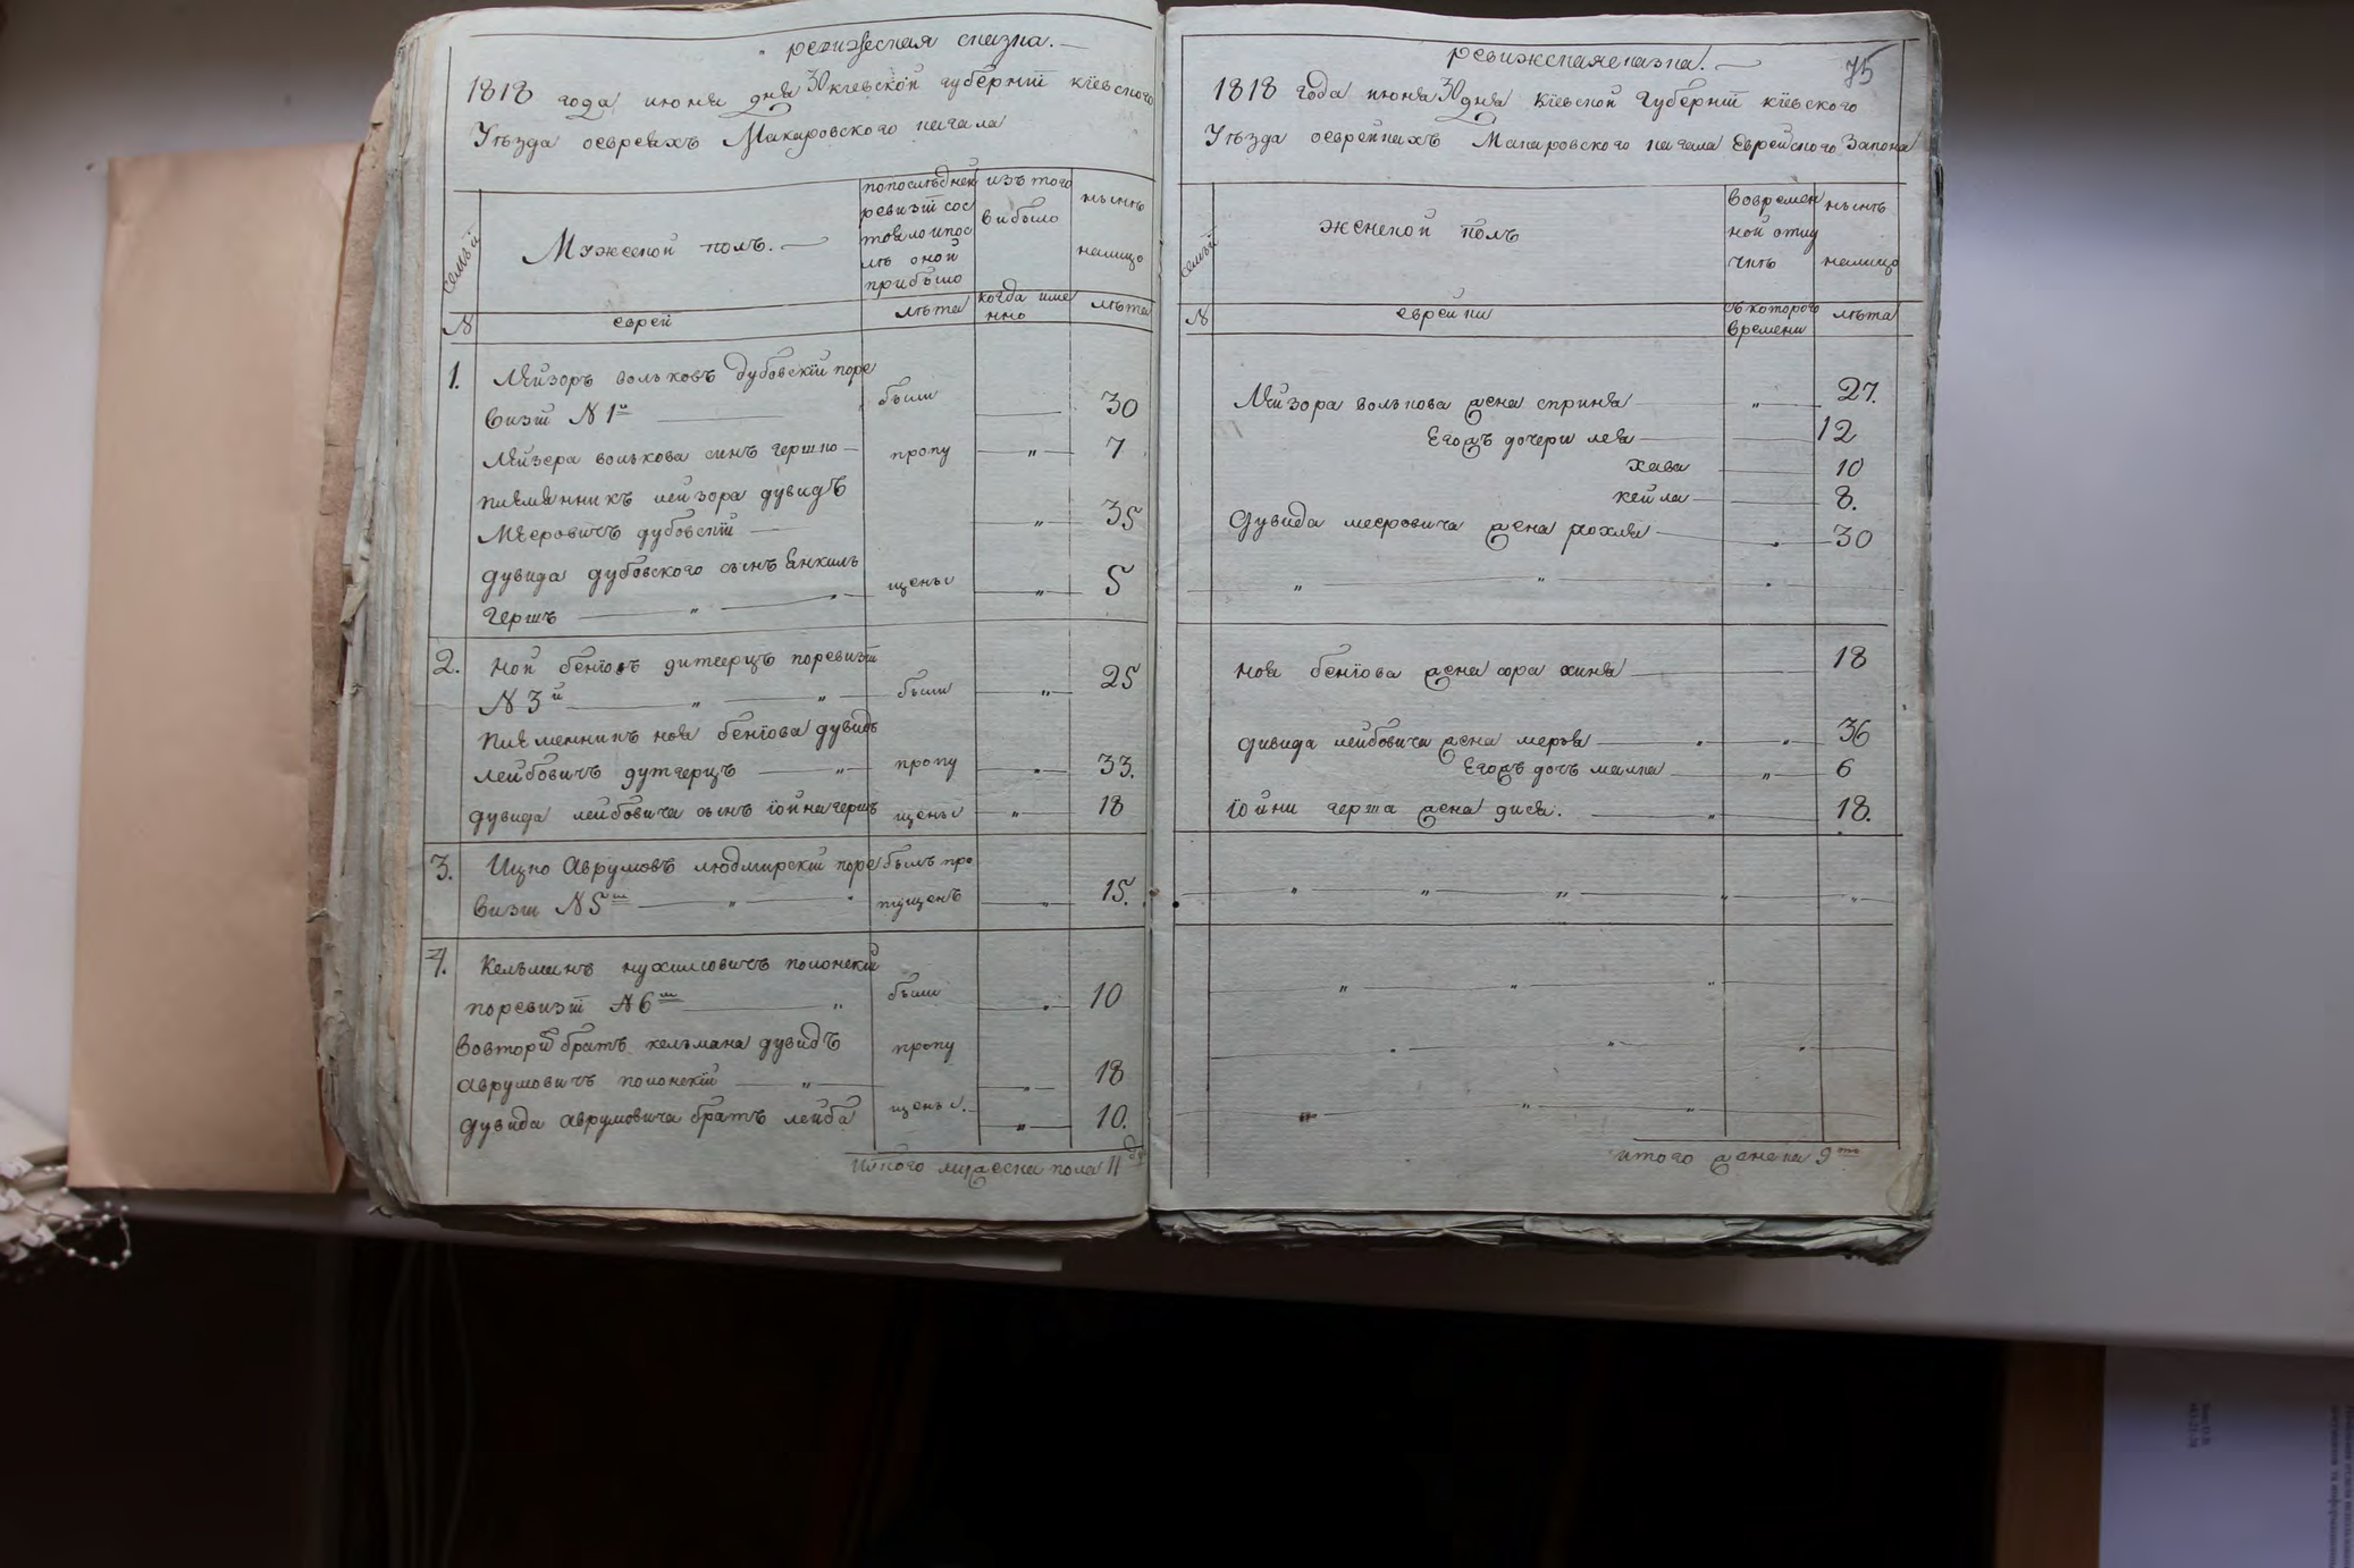 ревижеская сказка.
1818 года июня дня 30 киевской губернїи кїевского
Уѣзда оевреяхъ Макаровского кагала
семьи
Мужеской полъ.
попослѣдней
ревизїи сос
тояло ипос
лѣ оной
прибыло
изъ того
выбыло
нынѣ
налицо
N
еврей
лѣта
когда име
нно
лѣта
1. Лейзоръ вольковъ дубовскїй поре
визїи N 1й были 30
Лейзера волькова синъ гершко пропу „ 7
племянникъ лейзора дувидъ
Меровичъ дубовскїй „ 35
дувида дубовского сынъ Янкиль
гершъ „ щены „ 5
2. Ной бенїовъ поревизїи
N 3й „ „ были „ 25
племенникъ ноя бенїова дувидъ
лейбовичъ „ пропу 33.
дувида лейбовича сынъ їойна гершъ щены „ 18
3. Ицко Аврумовъ людмирскїй поре былъ про
визїи N 5й „ пущенъ „ 15.
4. Кельманъ нухимовичъ полонскїй
поревизїи N 6й „ были 10
вовторй братъ кельмана дувидъ пропу
аврумовичъ полонскїй „ „ 18
дувида аврумовича братъ лейба щены. „ 10.
итого мужеска пола 11
ревижская сказка.
75
1818 года июня 30 дня Кїевской Губернїи кїевского
Уѣзда оеврейкахъ Макаровского кагала Еврейского Закона
семьи
женской полъ
вовремен
ной отлу
чкѣ
нынѣ
налицо
N
еврейки
съ которого
времени
лѣта
Лейзора волькова жена сприня „ 27.
Егожъ дочери лея 12
хава 10
кейла 8.
Дувида меровича жена рохля 30
„ „
Ноя бенїова жена сора хиня 18
дувида лейбовича жена меръя 36
Егожъ дочъ малка „ 6
їойни герша жена дися. „ 18.
„ „ „ „
„ „ „
„
„ „ „
итого женска 9